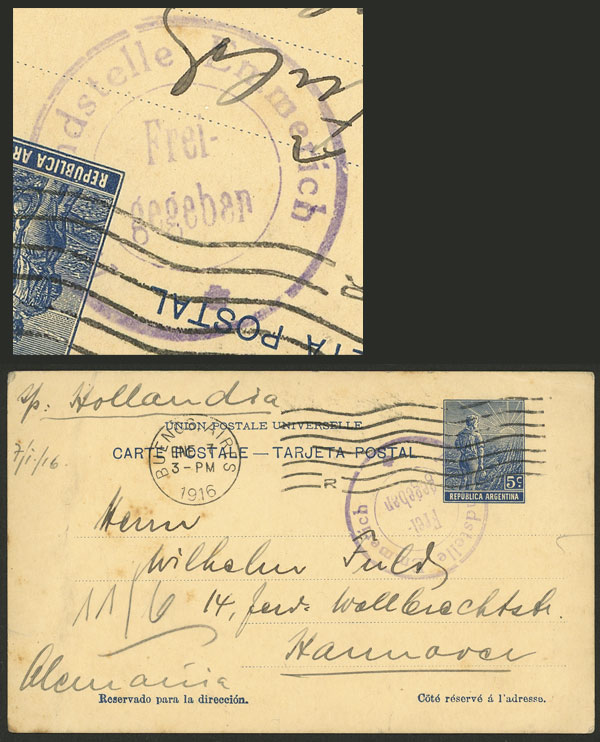 Emmerich
Frei-
gegeben
REPUBLICA AR
TA POSTAL
R
Fuld
p. Hollandia
7/1/16
UNION POSTALE UNIVERSELLE
CARTE POSTALE — TARJETA POSTAL
BUENOS AIRES
ENE 7
3-PM
1916
R
5c
REPÚBLICA ARGENTINA
Frei-
gegeben
Emmerich
Herrn
Wilhelm Fuld
11/6 14, Ferd. Wallbrechtstr.
Hannover
Alemania
Reservado para la dirección.
Côté réservé á l'adresse.